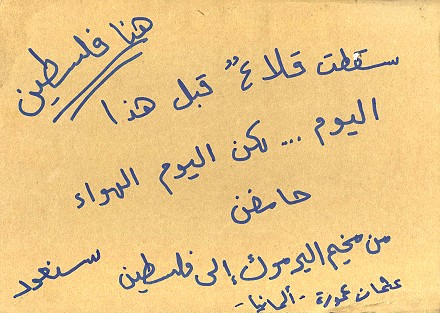 هنا فلسطين
سقطت قلاعٌ قبل هذا
اليوم ... لكن اليوم الهواء
حامض
من مخيم اليرموك إلى فلسطين سنعود
عثمان عمورة - ألمانيا -